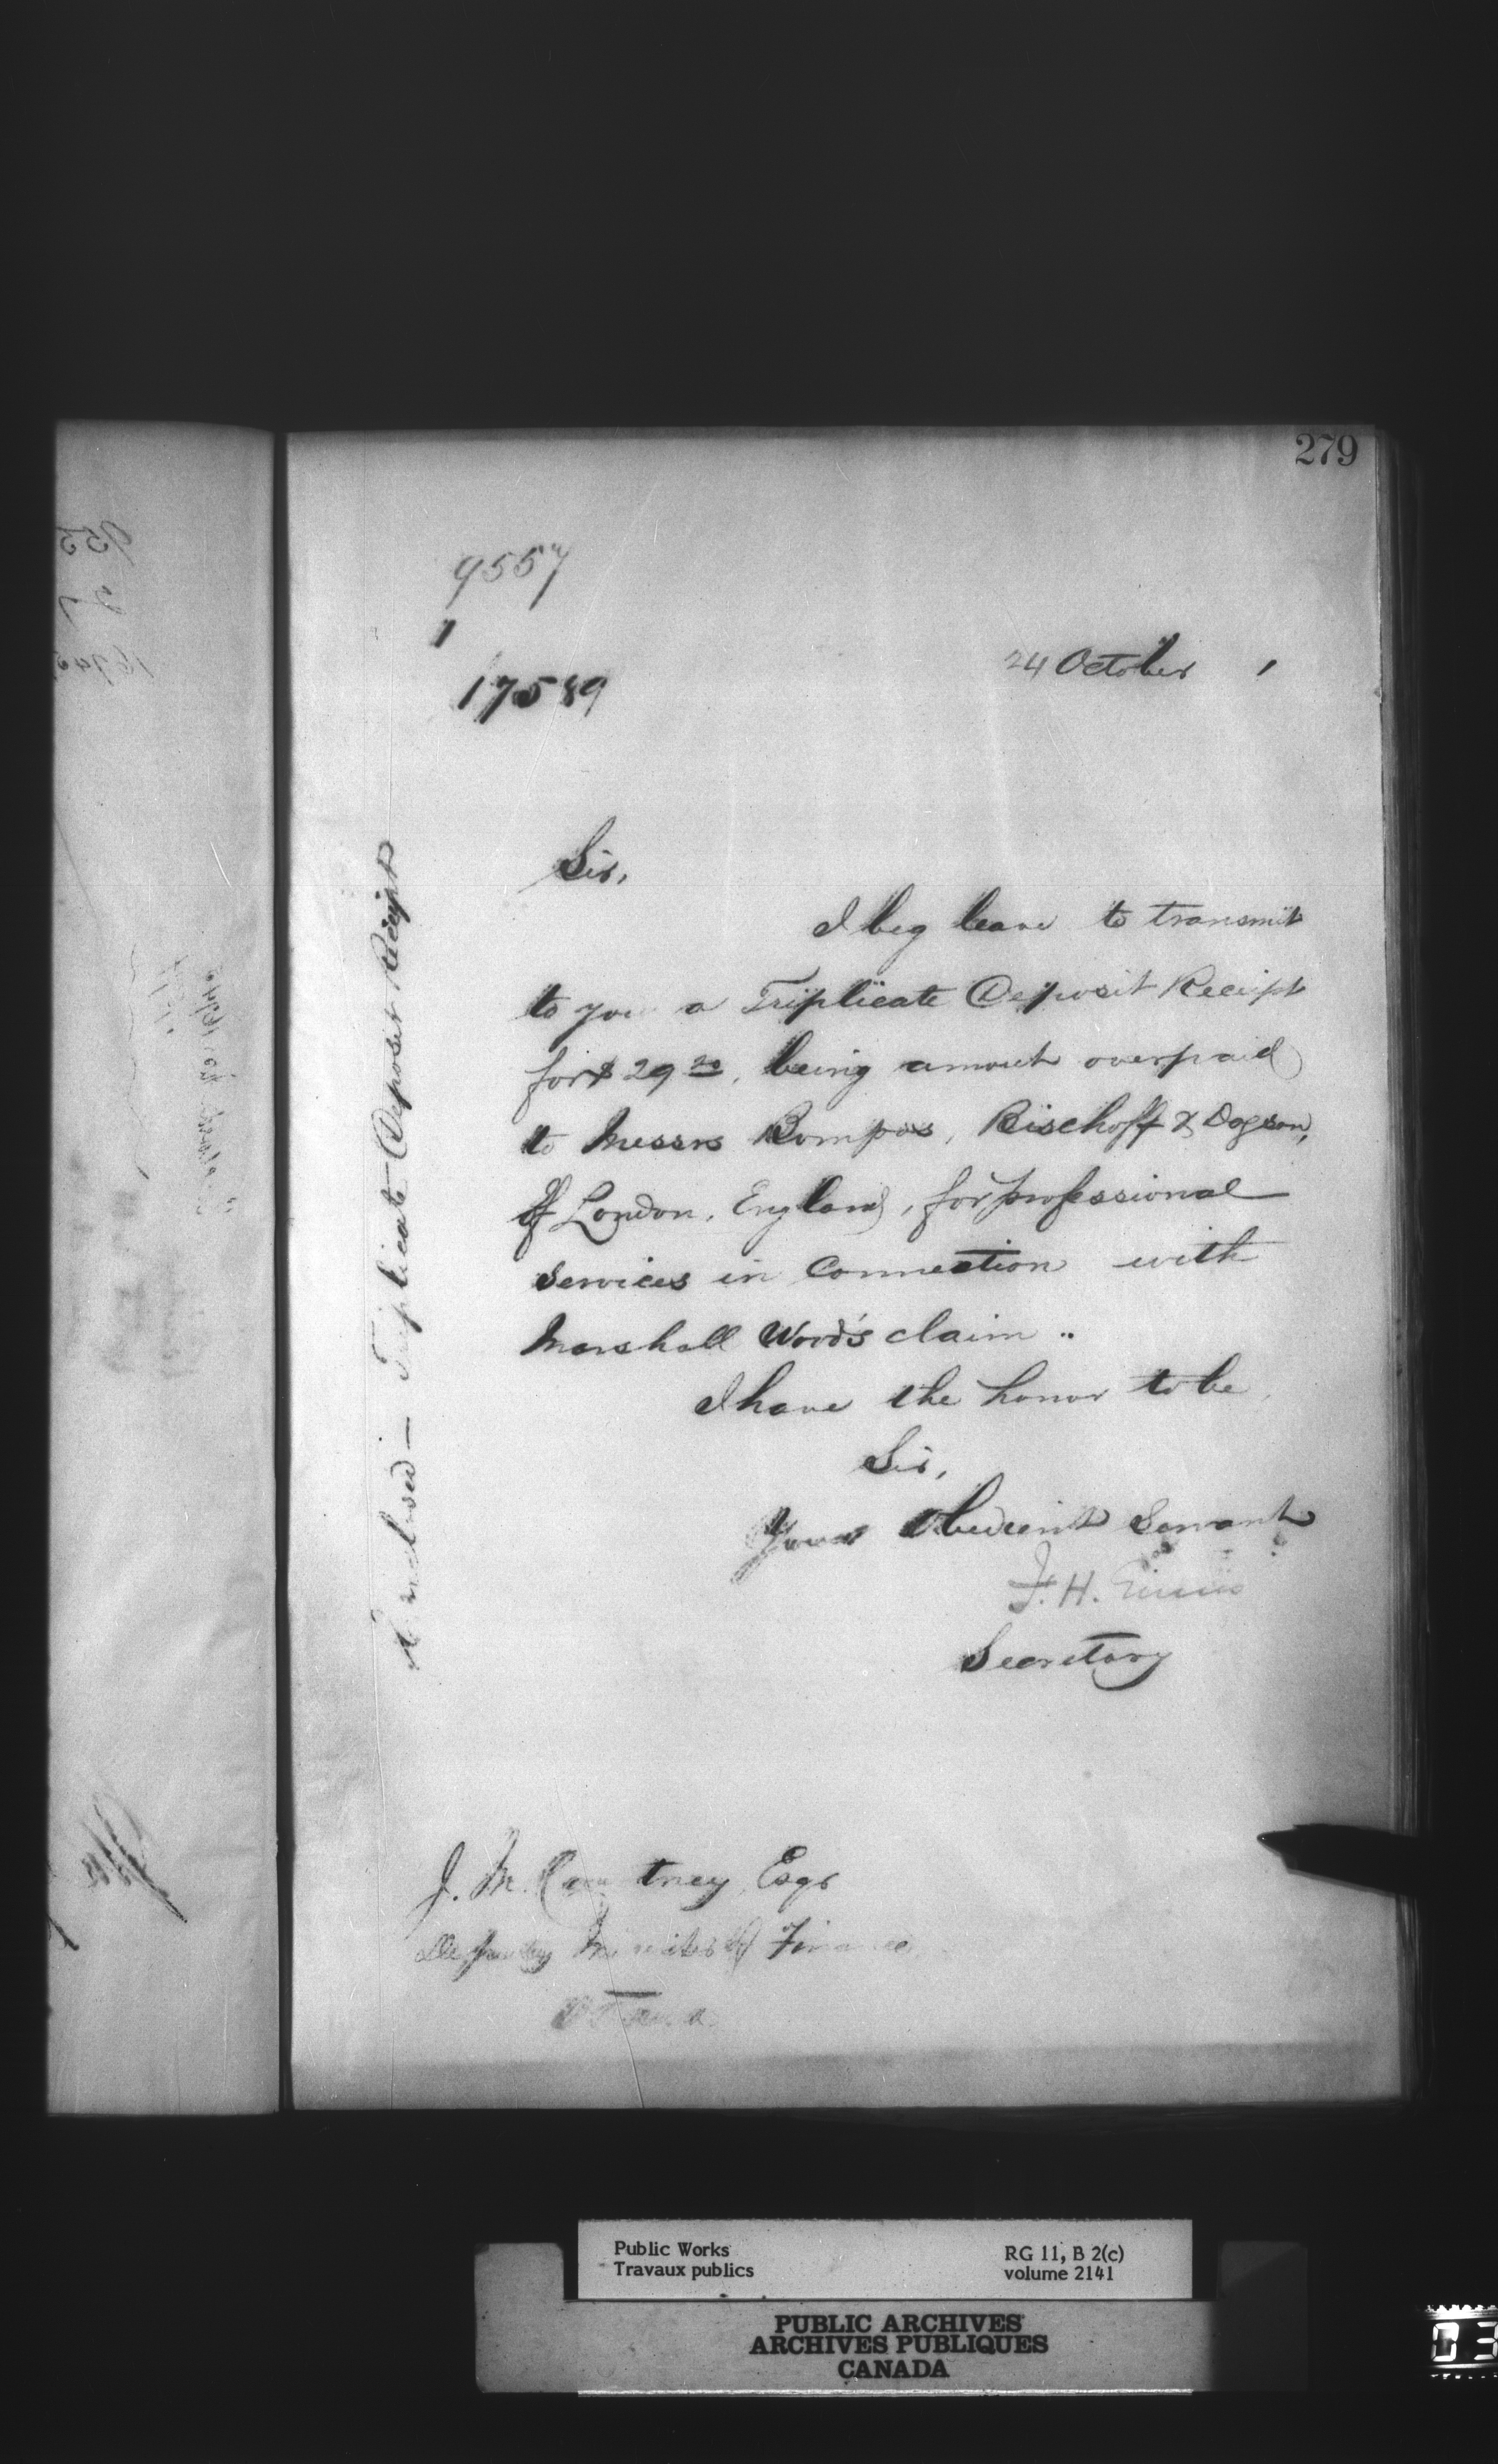 279
9557
1
17589
24 October 1
Sir,
I beg leave to transmit
to you a Triplicate Deposit Receipt
for $ 29 20, being amount overpaid
to Messrs Bompas, Bischoff & Dogson,
of London, England, for professional
services in connection with
Marshall Wood's claim ..
I have the honor to be,
Sir,
Your obedient servant
F. H. Ennis
Secretary
J. M. Courtney, Esqr
Deputy Minister of Finance,
Ottawa.
Enclosed — Triplicate Deposit Receipt
Public Works
Travaux publics
RG 11, B 2(c)
volume 2141
PUBLIC ARCHIVES
ARCHIVES PUBLIQUES
CANADA
03